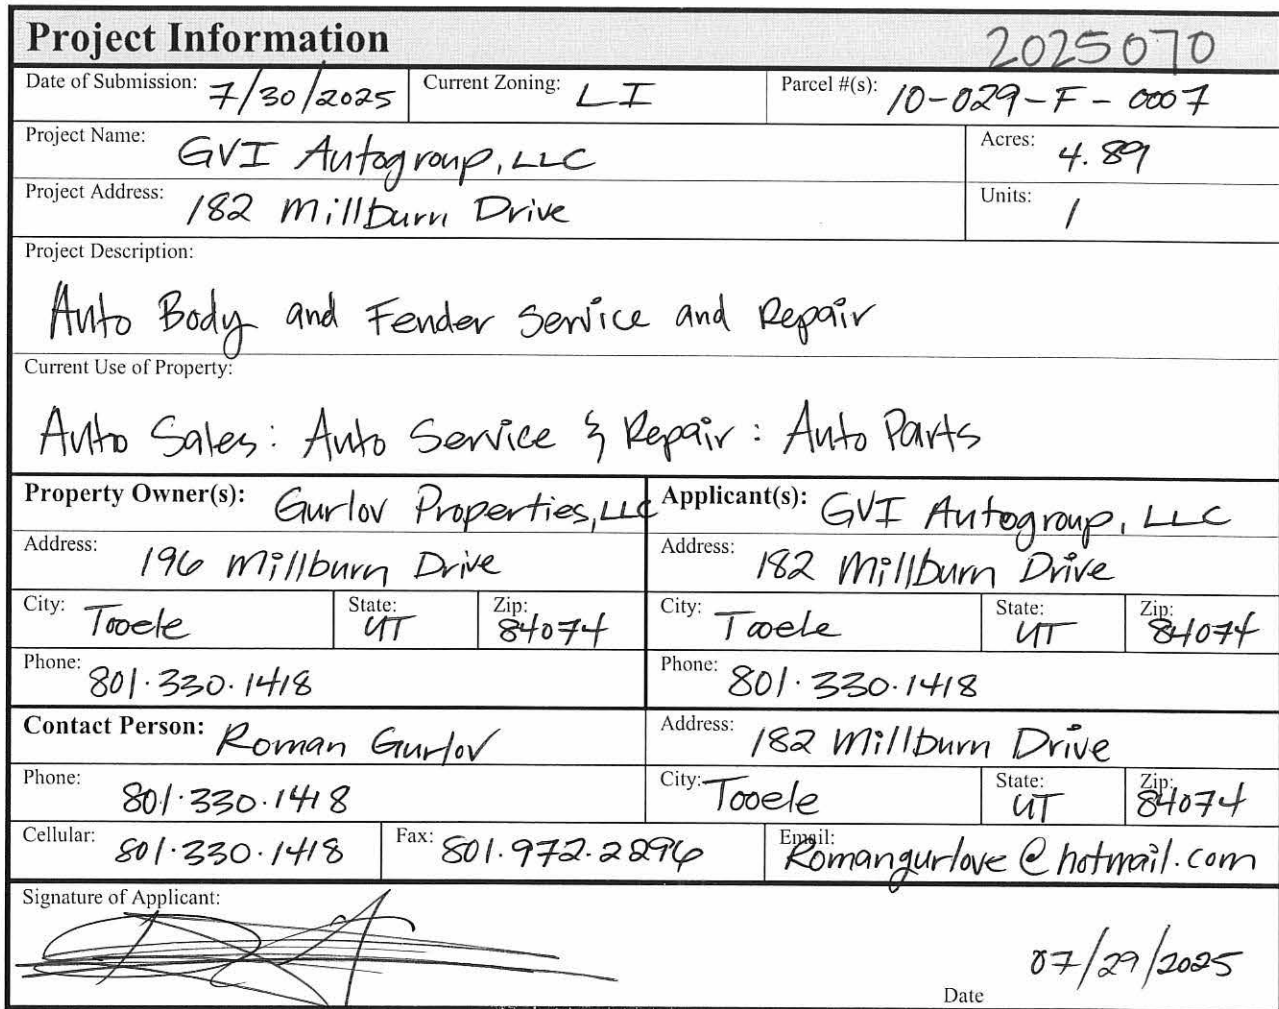 Project Information 2025070
Date of Submission: 7/30/2025 Current Zoning: LI Parcel #(s): 10-029-F-0007
Project Name: GVI Autogroup, LLC Acres: 4.89
Project Address: 182 Millburn Drive Units: 1
Project Description:
Auto Body and Fender Service and Repair
Current Use of Property:
Auto Sales: Auto Service & Repair: Auto Parts
Property Owner(s): Gurlov Properties, LLC Applicant(s): GVI Autogroup, LLC
Address: 196 Millburn Drive Address: 182 Millburn Drive
City: Tooele State: UT Zip: 84074 City: Tooele State: UT Zip: 84074
Phone: 801.330.1418 Phone: 801.330.1418
Contact Person: Roman Gurlov Address: 182 Millburn Drive
Phone: 801.330.1418 City: Tooele State: UT Zip: 84074
Cellular: 801.330.1418 Fax: 801.972.2296 Email: Romangurlove@hotmail.com
Signature of Applicant:
07/29/2025
Date